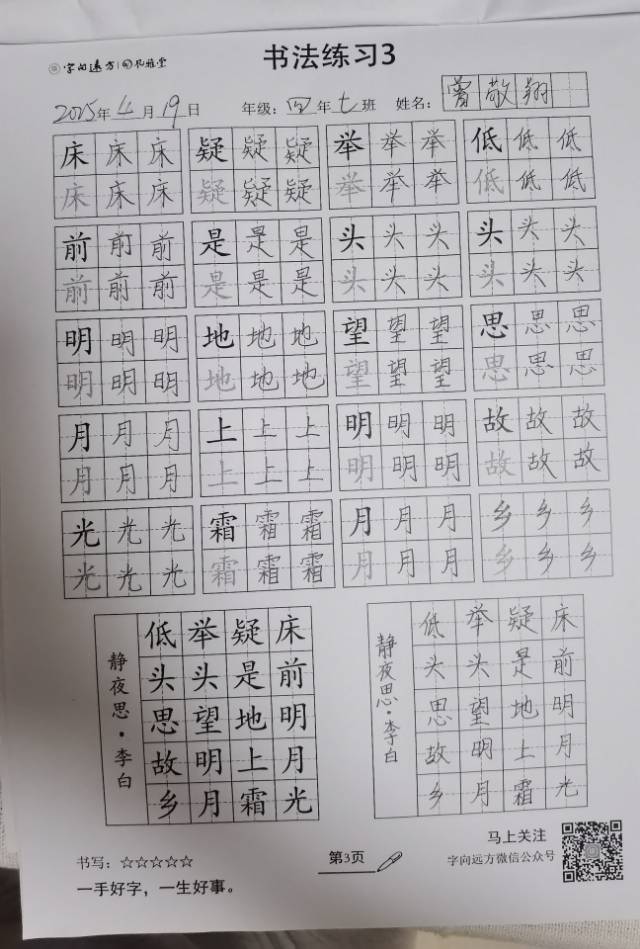 字向远方 书法练习3
2025年4月19日 年级:四年七班 姓名:曾敬翔
床床床 疑疑疑 举举举 低低低
床床床 疑疑疑 举举举 低低低
前前前 是是是 头头头 头头头
前前前 是是是 头头头 头头头
明明明 地地地 望望望 思思思
明明明 地地地 望望望 思思思
月月月 上上上 明明明 故故故
月月月 上上上 明明明 故故故
光光光 霜霜霜 月月月 乡乡乡
光光光 霜霜霜 月月月 乡乡乡
床前明月光
疑是地上霜
举头望明月
低头思故乡
静夜思·李白
床前明月光
疑是地上霜
举头望明月
低头思故乡
静夜思·李白
书写:☆☆☆☆☆
一手好字,一生好事。
第3页
马上关注
字向远方微信公众号